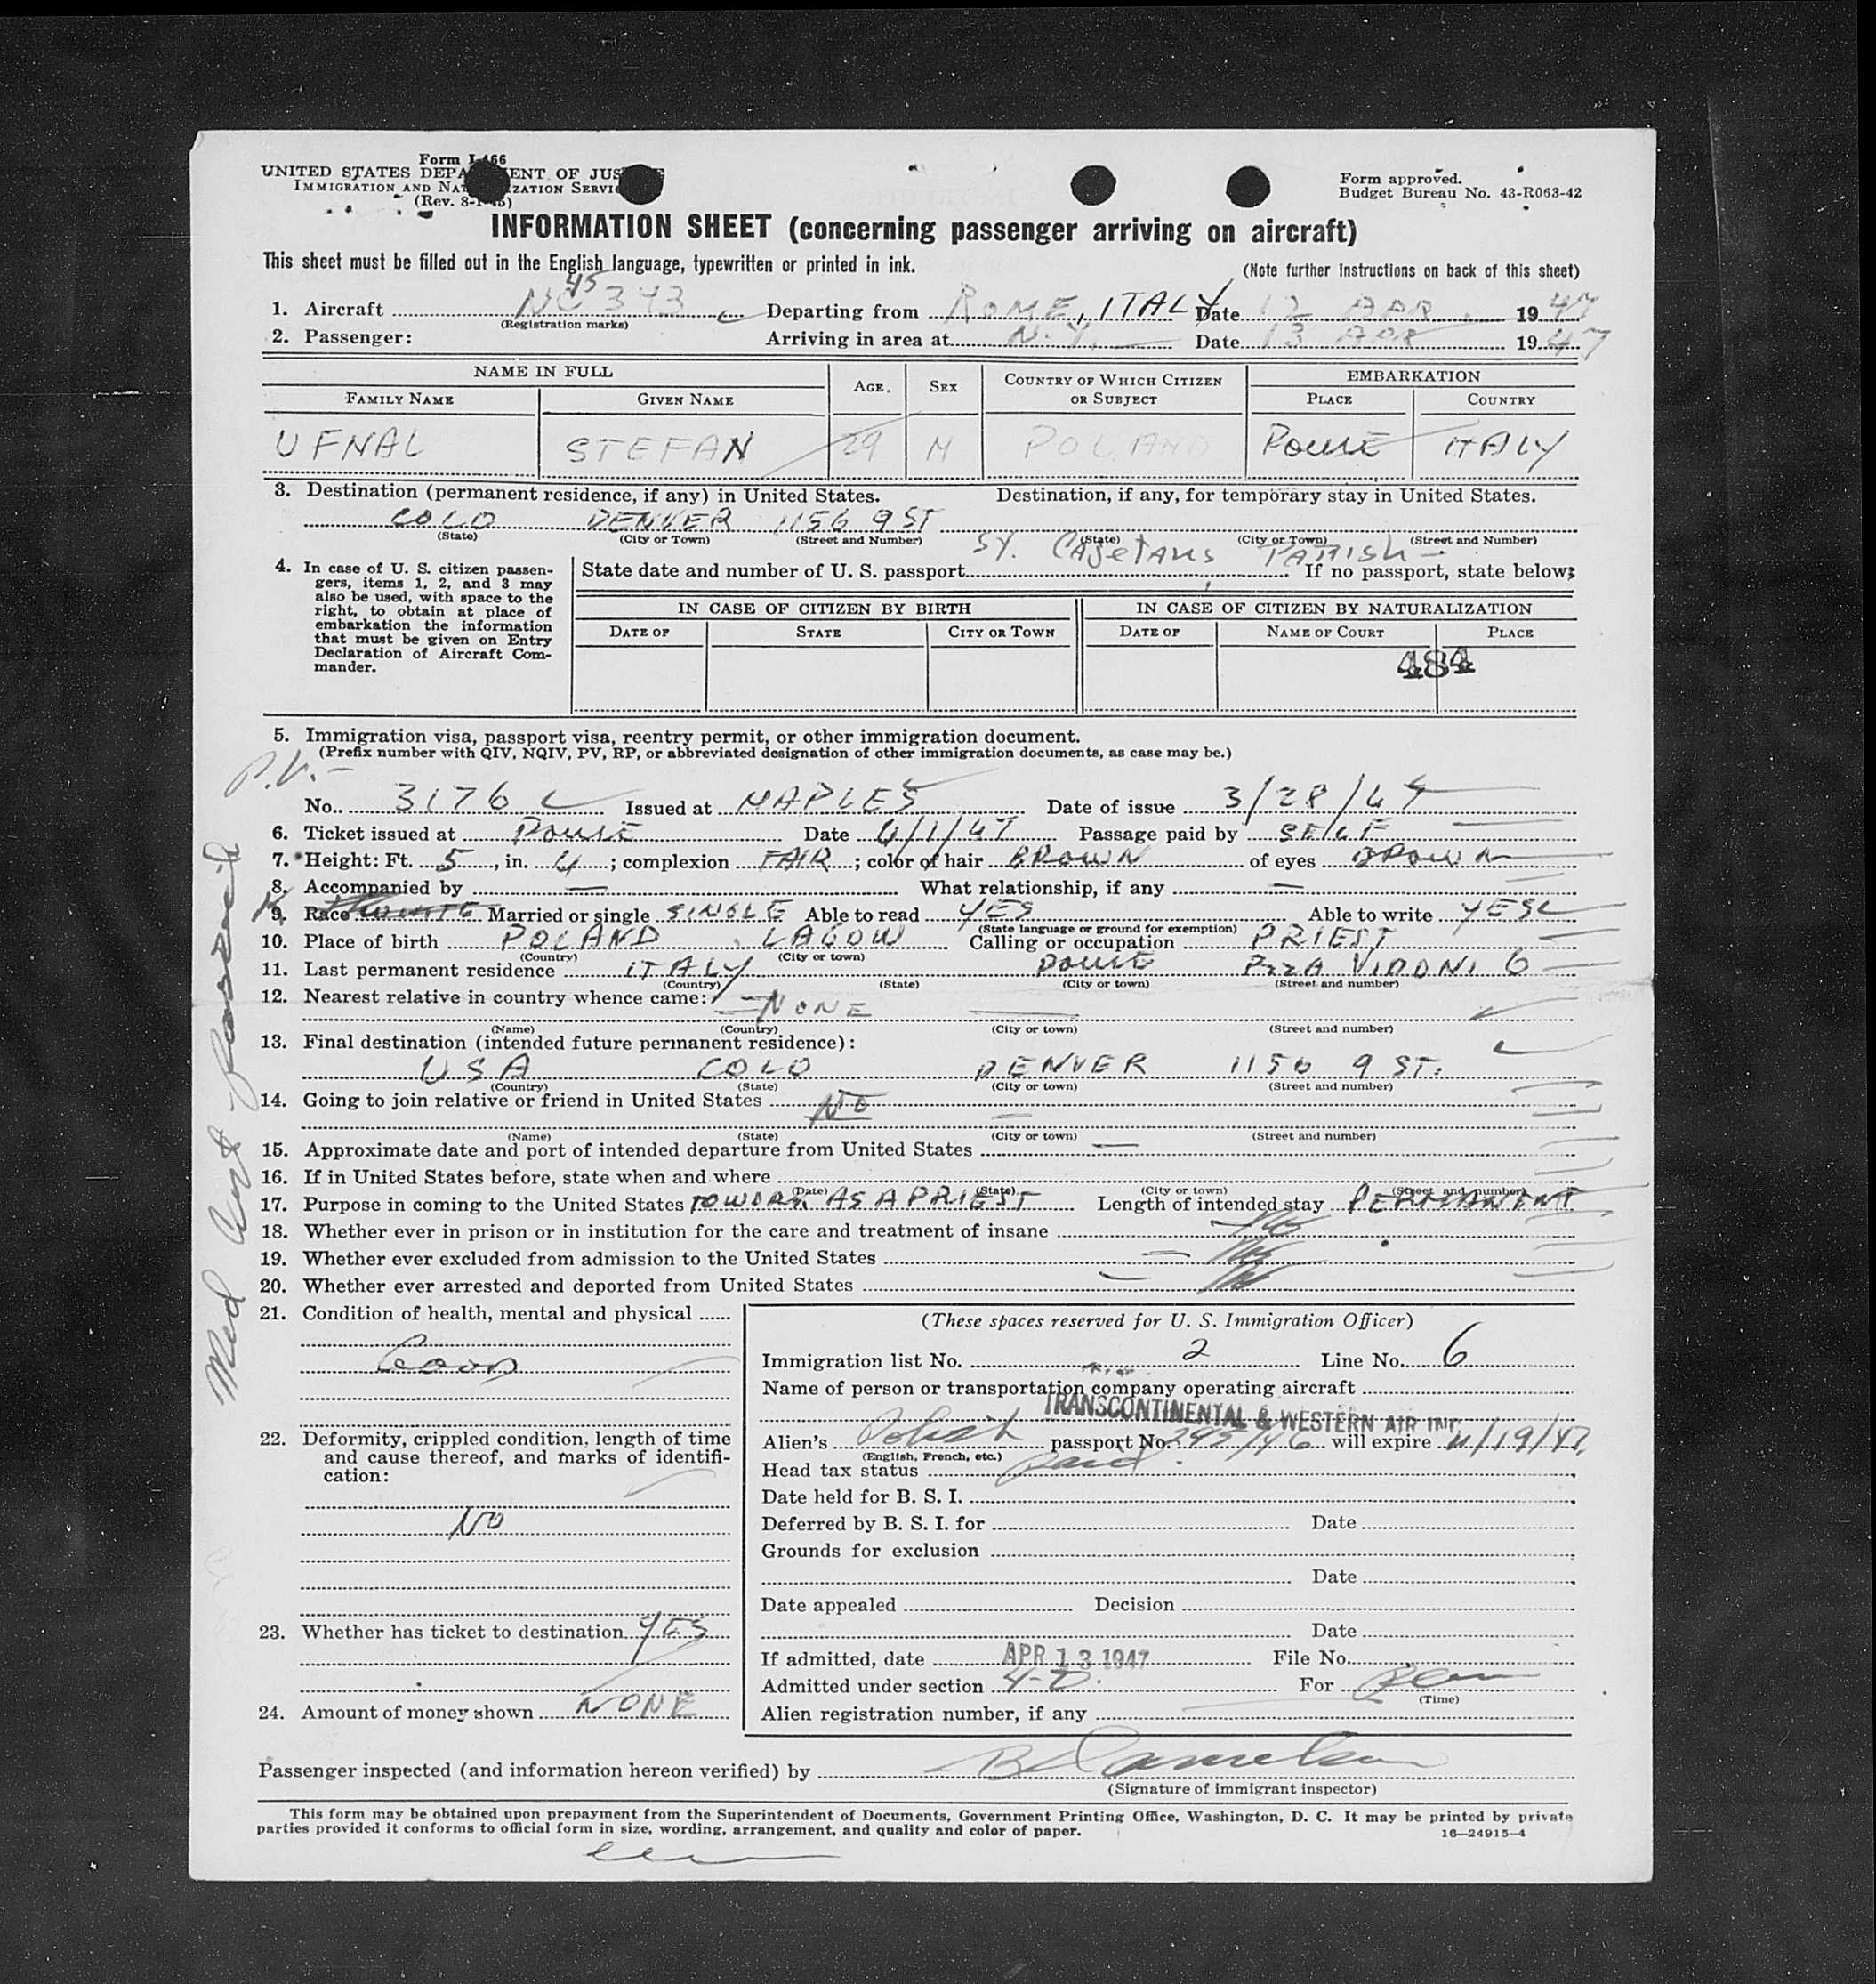 Form I-466
UNITED STATES DEPARTMENT OF JUSTICE
IMMIGRATION AND NATURALIZATION SERVICE
(Rev. 8-1-45)
Form approved.
Budget Bureau No. 43-R063-42
INFORMATION SHEET (concerning passenger arriving on aircraft)
This sheet must be filled out in the English language, typewritten or printed in ink.
(Note further instructions on back of this sheet)
45
1. Aircraft NC 343 Departing from ROME, ITALY Date 12 APR 1947
(Registration marks)
2. Passenger: Arriving in area at N.Y. Date 13 APR 1947
NAME IN FULL AGE SEX COUNTRY OF WHICH CITIZEN OR SUBJECT EMBARKATION
FAMILY NAME GIVEN NAME PLACE COUNTRY
UFNAL STEFAN 29 M POLAND ROME ITALY
3. Destination (permanent residence, if any) in United States. Destination, if any, for temporary stay in United States.
COLO DENVER 1156 9 ST
(State) (City or Town) (Street and Number) (State) (City or Town) (Street and Number)
ST. CAJETANS PARISH
4. In case of U. S. citizen passengers, items 1, 2, and 3 may also be used, with space to the right, to obtain at place of embarkation the information that must be given on Entry Declaration of Aircraft Commander.
State date and number of U. S. passport If no passport, state below:
IN CASE OF CITIZEN BY BIRTH IN CASE OF CITIZEN BY NATURALIZATION
DATE OF STATE CITY OR TOWN DATE OF NAME OF COURT PLACE
484
5. Immigration visa, passport visa, reentry permit, or other immigration document.
(Prefix number with QIV, NQIV, PV, RP, or abbreviated designation of other immigration documents, as case may be.)
P.V.-
No. 3176 Issued at NAPLES Date of issue 3/28/47
6. Ticket issued at ROME Date 4/1/47 Passage paid by SELF
7. Height: Ft. 5, in. 4; complexion FAIR; color of hair BROWN of eyes BROWN
8. Accompanied by — What relationship, if any —
9. Race WHITE Married or single SINGLE Able to read YES Able to write YES
(State language or ground for exemption)
10. Place of birth POLAND, LAGOW Calling or occupation PRIEST
(Country) (City or town)
11. Last permanent residence ITALY ROME PzzA VIDONI 6
(Country) (State) (City or town) (Street and number)
12. Nearest relative in country whence came: — NONE
(Name) (Country) (City or town) (Street and number)
13. Final destination (intended future permanent residence):
USA COLO DENVER 1156 9 ST.
(Country) (State) (City or town) (Street and number)
14. Going to join relative or friend in United States NO
(Name) (State) (City or town) (Street and number)
15. Approximate date and port of intended departure from United States —
16. If in United States before, state when and where
(Date) (State) (City or town) (Street and number)
17. Purpose in coming to the United States TO WORK AS A PRIEST Length of intended stay PERMANENT
18. Whether ever in prison or in institution for the care and treatment of insane No
19. Whether ever excluded from admission to the United States No
20. Whether ever arrested and deported from United States No
Med Cert
21. Condition of health, mental and physical
GOOD
22. Deformity, crippled condition, length of time and cause thereof, and marks of identification:
NO
23. Whether has ticket to destination YES
24. Amount of money shown NONE
(These spaces reserved for U. S. Immigration Officer)
Immigration list No. 2 Line No. 6
Name of person or transportation company operating aircraft
TRANSCONTINENTAL & WESTERN AIR INC.
Alien's Polish passport No. 295/46 will expire 11/19/47
(English, French, etc.)
Head tax status Paid
Date held for B. S. I.
Deferred by B. S. I. for Date
Grounds for exclusion
Date
Date appealed Decision
Date
If admitted, date APR 13 1947 File No.
Admitted under section 4-D. For
(Time)
Alien registration number, if any
Passenger inspected (and information hereon verified) by
(Signature of immigrant inspector)
This form may be obtained upon prepayment from the Superintendent of Documents, Government Printing Office, Washington, D. C. It may be printed by private
parties provided it conforms to official form in size, wording, arrangement, and quality and color of paper.
16—24915-4